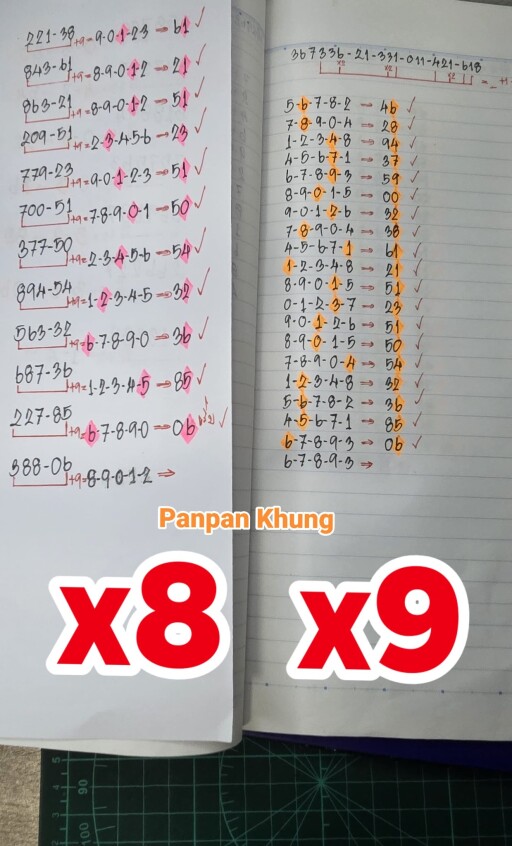 221-38 +9=9-0-1-2-3 ⇒ 61 ✓
843-61 +9=8-9-0-1-2 ⇒ 21 ✓
863-21 +9=8-9-0-1-2 ⇒ 51 ✓
209-51 +9=2-3-4-5-6 ⇒ 23 ✓
779-23 +9=9-0-1-2-3 ⇒ 51 ✓
700-51 +9=7-8-9-0-1 ⇒ 50 ✓
377-50 +9=2-3-4-5-6 ⇒ 54 ✓
894-54 +9=1-2-3-4-5 ⇒ 32 ✓
563-32 +9=6-7-8-9-0 ⇒ 36 ✓
687-36 +9=1-2-3-4-5 ⇒ 85 ✓
227-85 +9=6-7-8-9-0 ⇒ 06 ✓
388-06 +9=8-9-0-1-2 ⇒
367336-21-331-011-421-618
5-6-7-8-2 ⇒ 46 ✓
7-8-9-0-4 ⇒ 28 ✓
1-2-3-4-8 ⇒ 94 ✓
4-5-6-7-1 ⇒ 37 ✓
6-7-8-9-3 ⇒ 59 ✓
8-9-0-1-5 ⇒ 00 ✓
9-0-1-2-6 ⇒ 32 ✓
7-8-9-0-4 ⇒ 38 ✓
4-5-6-7-1 ⇒ 61 ✓
1-2-3-4-8 ⇒ 21 ✓
8-9-0-1-5 ⇒ 51 ✓
0-1-2-3-7 ⇒ 23 ✓
9-0-1-2-6 ⇒ 51 ✓
8-9-0-1-5 ⇒ 50 ✓
7-8-9-0-4 ⇒ 54 ✓
1-2-3-4-8 ⇒ 32 ✓
5-6-7-8-2 ⇒ 36 ✓
4-5-6-7-1 ⇒ 85 ✓
6-7-8-9-3 ⇒ 06 ✓
6-7-8-9-3 ⇒
Panpan Khung
x8 x9